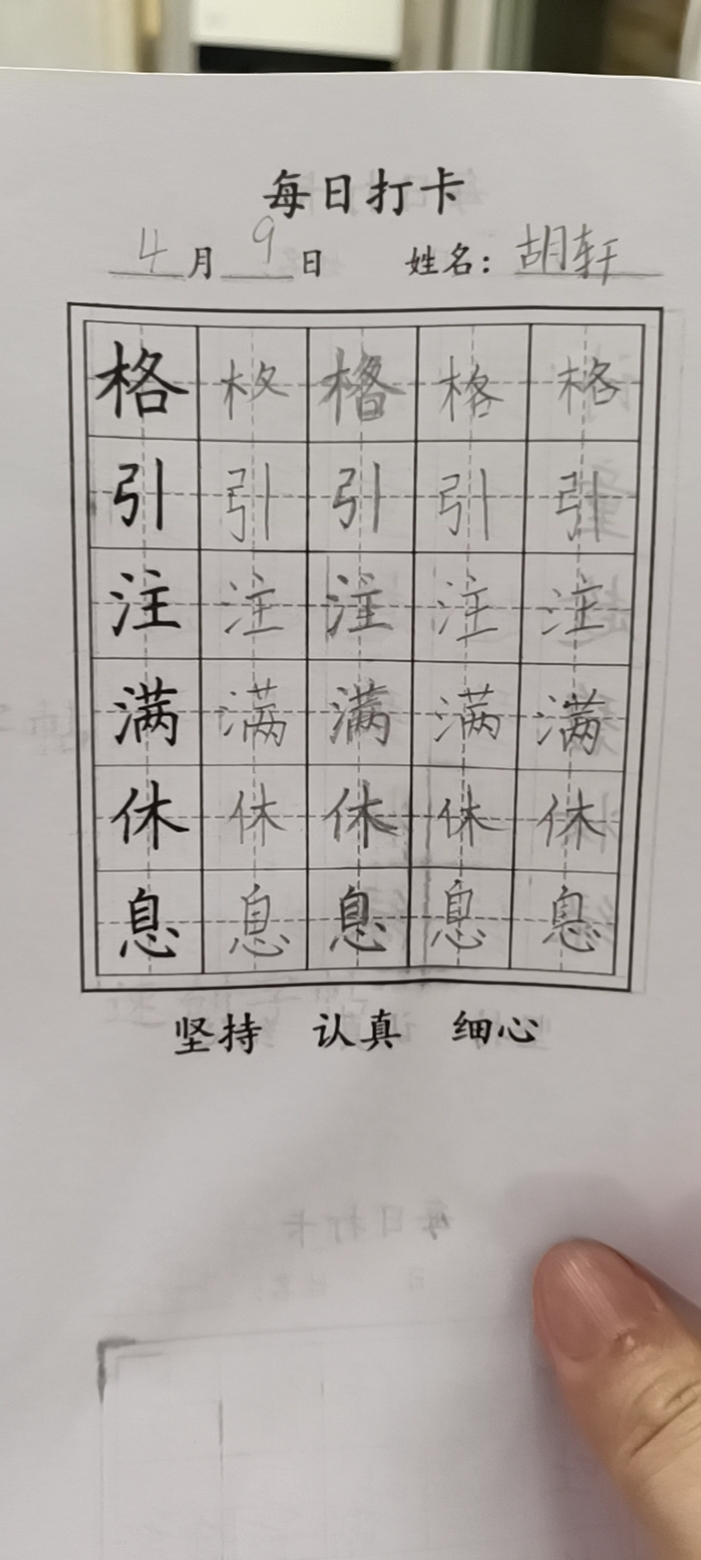 每日打卡
4月9日 姓名：胡轩
格 格 格 格
引 引 引 引 引
注 注 注 注 注
满 满 满 满 满
休 休 休 休 休
息 息 息 息 息
坚持 认真 细心
每日打卡